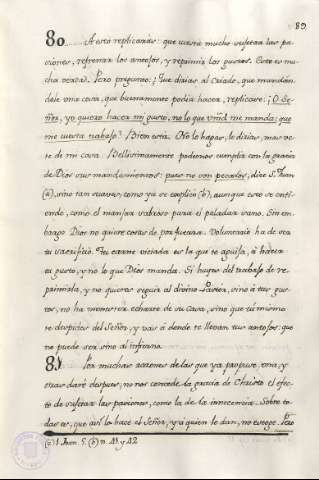 89.
80 A esto replicarás: que cuesta mucho sujetar las pa-
siones, refrenar los antojos, y reprimir los gustos. Esta es mu-
cha verdad. Pero pregunto: ¿Que dirias al Criado, que mandan-
dole una cosa, que buenamente podia hacer, replicase: ¡O Se-
ñor, yo quiero hacer mi gusto, no lo que Vmd. me manda: que
me cuesta trabajo? Bien está. No lo hagas, le dirias, mas ve-
te de mi casa. Bellisimamente podemos cumplir con la gracia
de Dios sus mandamientos: pues no son pesados, dice S. Juan
(a), sino tan suaves, como ya se explicó (b), aunque esto se enti-
ende, como el manjar sabroso para el paladar sano. Sin em-
bargo Dios no quiere cosas de por fuerza. Voluntario ha de ser
tu sacrificio. Tu carne viciada es la que te aguija, á hacer
tu gusto, y no lo que Dios manda. Si huyes del trabajo de re-
primirla, y no quieres seguir al divino Pastor, sino á tus gus-
tos, no ha menester echarte de su Casa, sino que tú mismo
te despides del Señor, y vas á donde te llevan tus antojos, que
no puede ser sino al infierno.
81 Por muchas razones de las que ya propuse, una, y
otras daré despues, no nos concede la gracia de Christo el efec-
to de sujetar las pasiones, como la de la innocencia. Sobre to-
das es, que asi lo hace el Señor, y á quien le dan, no escoge. Pero
(a) 1. Joan. 5. (b) n. 41. y 42